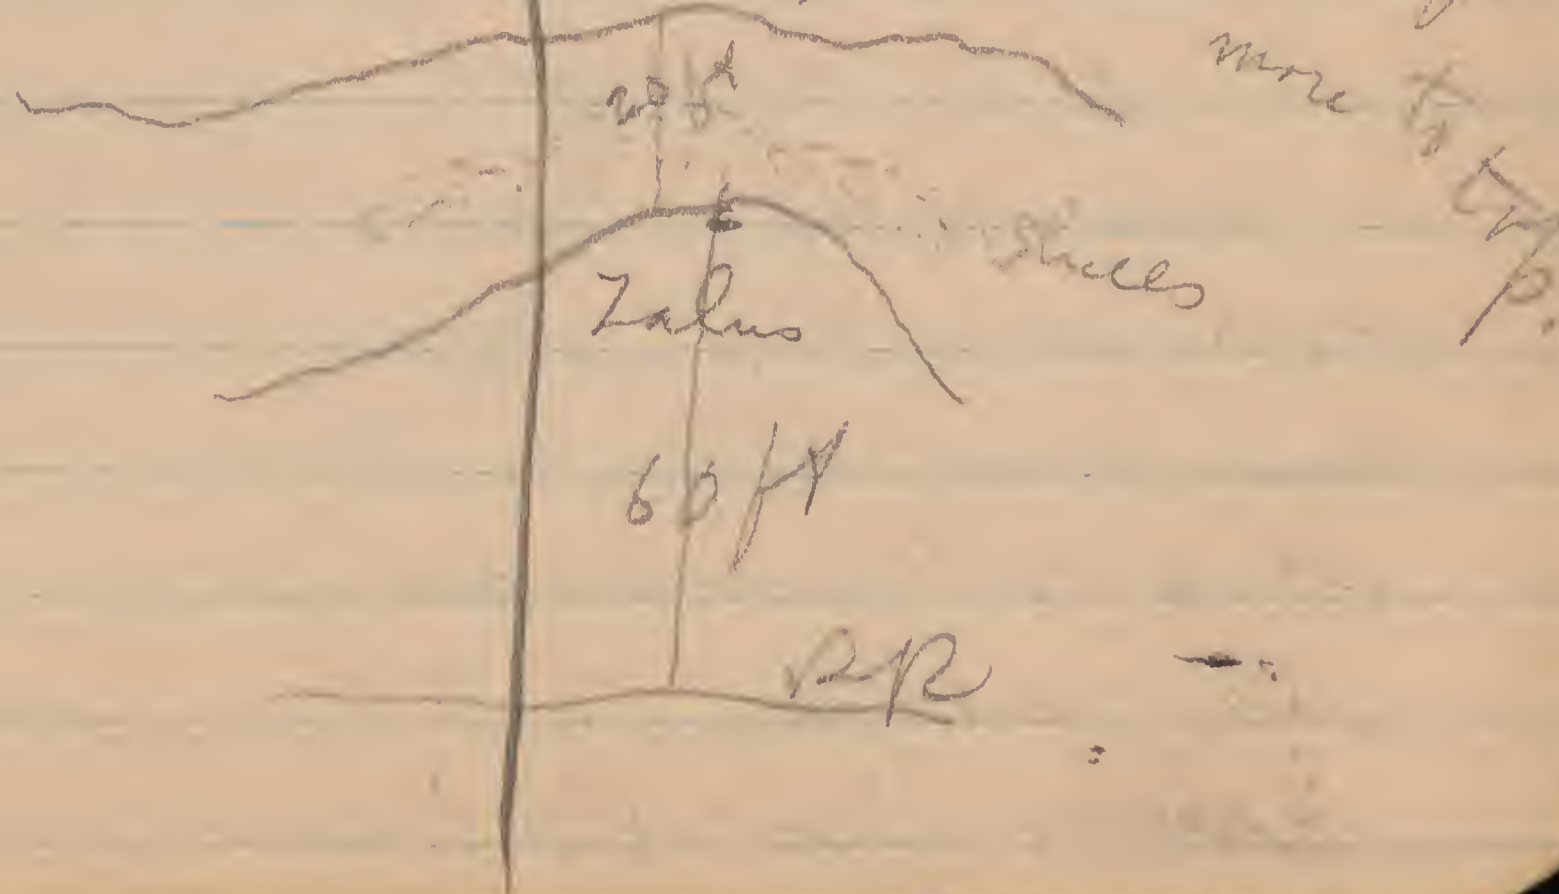 more to top.
20 ft
Shales
Talus
60 ft
RR